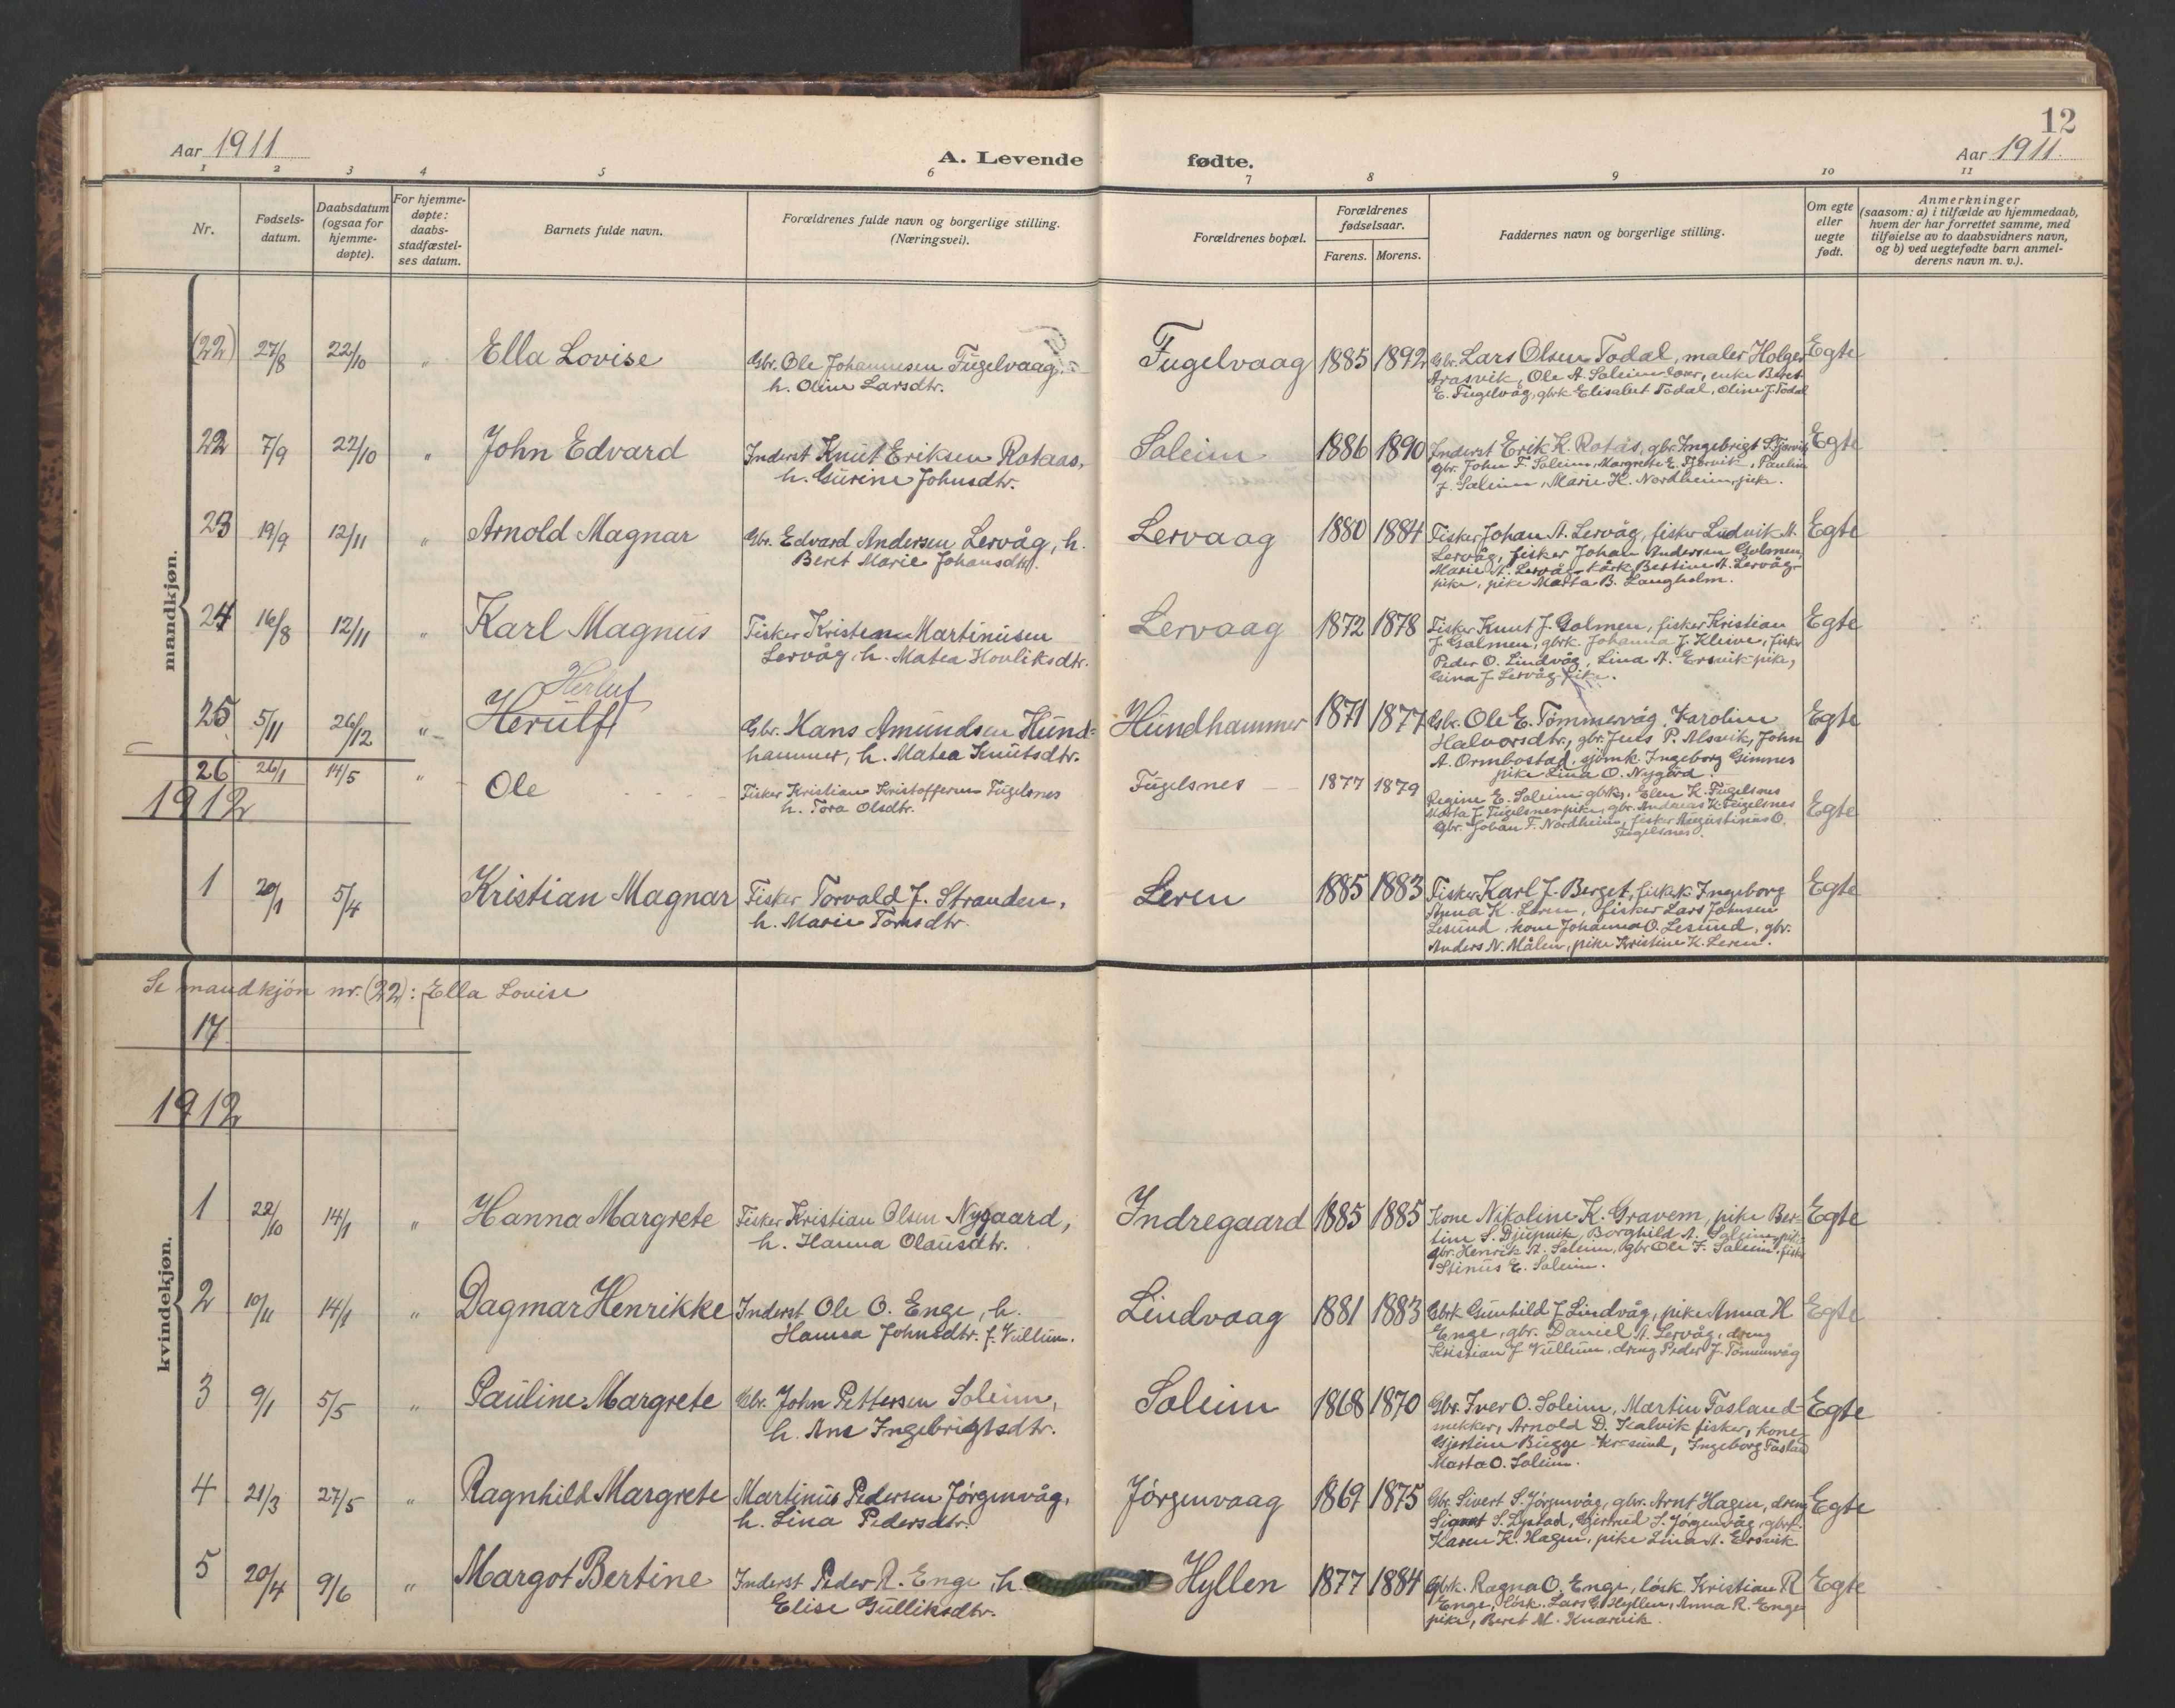 12
Aar 1911
A. Levende fødte.
Aar 1911.
1 2 3 4 5 6 7 8 9 10 11
Nr.
Fødsels-
datum.
Daabsdatum
(ogsaa for
hjemme-
døpte).
For hjemme-
døpte:
daabs-
stadfæstel-
ses datum.
Barnets fulde navn.
Forældrenes fulde navn og borgerlige stilling.
(Næringsvei).
Forældrenes bopæl.
Forældrenes
fødselsaar.
Farens. Morens.
Faddernes navn og borgerlige stilling.
Om egte
eller
uegte
født.
Anmerkninger
(saasom: a) i tilfælde av hjemmedaab,
hvem der har forrettet samme, med
tilføielse av to daabsvidners navn,
og b) ved uegtefødte barn anmel-
derens navn m. v.).
mandkjøn.
(22) 27/8 22/10 " Ella Lovise
Gbr. Ole Johannesen Fugelvaag
h. Oline Larsdtr.
Fugelvaag 1885 1892
Gbr. Lars Olsen Todal, maler Holger
Arasvik, Ole A. Soleim lærer, enke Beret
E. Fugelvåg, gbrk Elisabet Todal, Oline J. Todal
Egte
22 7/9 22/10 " John Edvard
Inderst Knut Eriksen Rotaas,
h. Gurine Johnsdtr.
Soleim 1886 1890
Inderst Erik K. Rotås, gbr. Ingebrigt S. Fjørvik
gbr. John F. Soleim, Margrete E. Fjørvik, Pauline
J. Soleim, Marie H. Nordheim, pike.
Egte
23 19/9 12/11 " Arnold Magnar
Gbr. Edvard Andersen Lervåg, h.
Beret Marie Johansdtr.
Lervaag 1880 1884
Fisker Johan A. Lervåg, fisker Ludvik A.
Lervåg, fisker Johan Andersen Golmen,
Marie A. Lervåg Bertine A. Lervåg
pike, pike Marta B. Langholm.
Egte
24 16/8 12/11 " Karl Magnus
Fisker Kristen Martinusen
Lervåg, h. Matea Hovliksdtr.
Lervaag 1872 1878
Fisker Knut J. Golmen, fisker Kristian
J. Golmen, gbrk. Johanna J. Kleive, fisker
Peder O. Lindvåg, Lina A. Ersvik pike,
Gina J. Lervåg pike.
Egte
Herluf
25 5/11 26/12 " Herulf
Gbr. Hans Amundsen Hund-
hammer, h. Matea Knutsdtr.
Hundhammer 1871 1877
Gbr. Ole E. Tømmervåg, Karoline
Halvorsdtr., gbr. Jens P. Alsvik, John
A. Ormbostad, sjømk. Ingeborg Gimnes
pike Lina O. Nygård.
Egte
26 26/1 14/5 " Ole
Fisker Kristian Kristoffersen Fugelsnes
h. Tora Olsdtr.
Fugelsnes 1877 1879
Regine E. Soleim gbrk., Elen K. Fugelsnes
Marta J. Fugelsnes pike, gbr. Andreas K. Fugelsnes
Gbr. Johan F. Nordheim, fisker Augustinus O.
Fugelsnes.
Egte
1912
1 20/1 5/4 Kristian Magnar
Fisker Torvald J. Stranden,
h. Marie Tomsdtr.
Leren 1885 1883
Fisker Karl J. Berget, fiskk. Ingeborg
Anna K. Leren, fisker Lars Johnsen
Lesund, kone Johanna O. Lesund, gbr.
Anders N. Målen, pike Kristine K. Leren.
Egte
Se mandkjön nr. (22): Ella Lovise
17
1912
kvindekjøn.
1 22/10 14/1 " Hanna Margrete
Fisker Kristian Olsen Nygaard,
h. Hanna Olausdtr.
Indregaard 1885 1885
Kone Nikoline K. Gravem, pike Ber-
tine S. Djupvik, Borghild A. Soleim, pike
gbr. Henrik A. Soleim, gbr Ole F. Soleim, fisker
Stinus E. Soleim.
Egte
2 10/11 14/1 " Dagmar Henrikke
Inderst Ole O. Enge, h.
Hansa Johnsdtr. f. Vullum.
Lindvaag 1881 1883
Gbrk Gunhild J Lindvåg, pike Anna H
Enge, gbr. Daniel A. Lervåg, dreng
Kristian J Vullum, dreng Peder J. Tømmervåg
Egte
3 9/1 5/5 " Pauline Margrete
Gbr. John Pettersen Soleim,
h. Ane Ingebrigtsdtr.
Soleim 1868 1870
Gbr. Iver O. Soleim, Martin Fosland
snekker, Arnold D. Kalvik fisker, kone
Gjertine Bugge Kr-sund, Ingeborg Fosland
Marta O. Soleim.
Egte
4 21/3 27/5 " Ragnhild Margrete
Martinus Pedersen Jörgenvåg,
h. Lina Pedersdtr.
Jörgenvaag 1869 1875
Gbr. Sivert S. Jörgenvåg, gbr. Arnt Hagen, dreng
Sigurt S. Lystad, Gjertrud S. Jörgenvåg, gbrk.
Karen K. Hagen, pike Lina A. Ersvik
Egte
5 20/4 9/6 " Margot Bertine
Inderst Peder R. Enge, h.
Elise Gulliksdtr.
Hyllen 1877 1884
Gbrk. Ragna O. Enge, løsk. Kristian R
Enge, løsk. Lars G. Hyllen, Anna R. Enge
pike, Beret M. Knarvik.
Egte